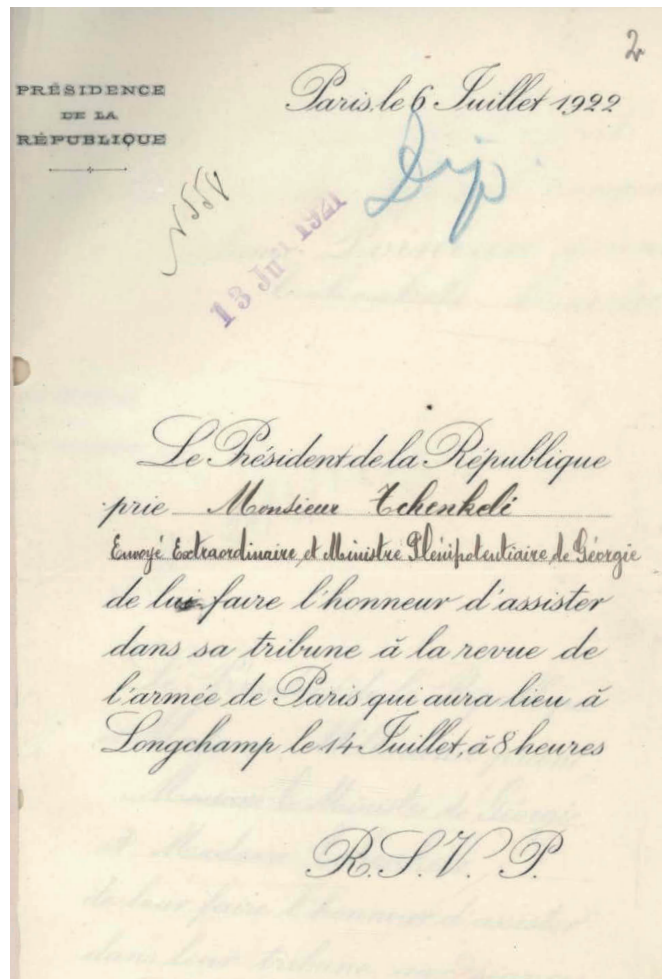 2
PRÉSIDENCE
DE LA
RÉPUBLIQUE
Paris, le 6 Juillet 1922
Dip.
13 Jui 1921
Le Président de la République
prie Monsieur Tchenkeli
Envoyé Extraordinaire et Ministre Plénipotentiaire de Géorgie
de lui faire l'honneur d'assister
dans sa tribune à la revue de
l'armée de Paris qui aura lieu à
Longchamp le 14 Juillet, à 8 heures
R. S. V. P.